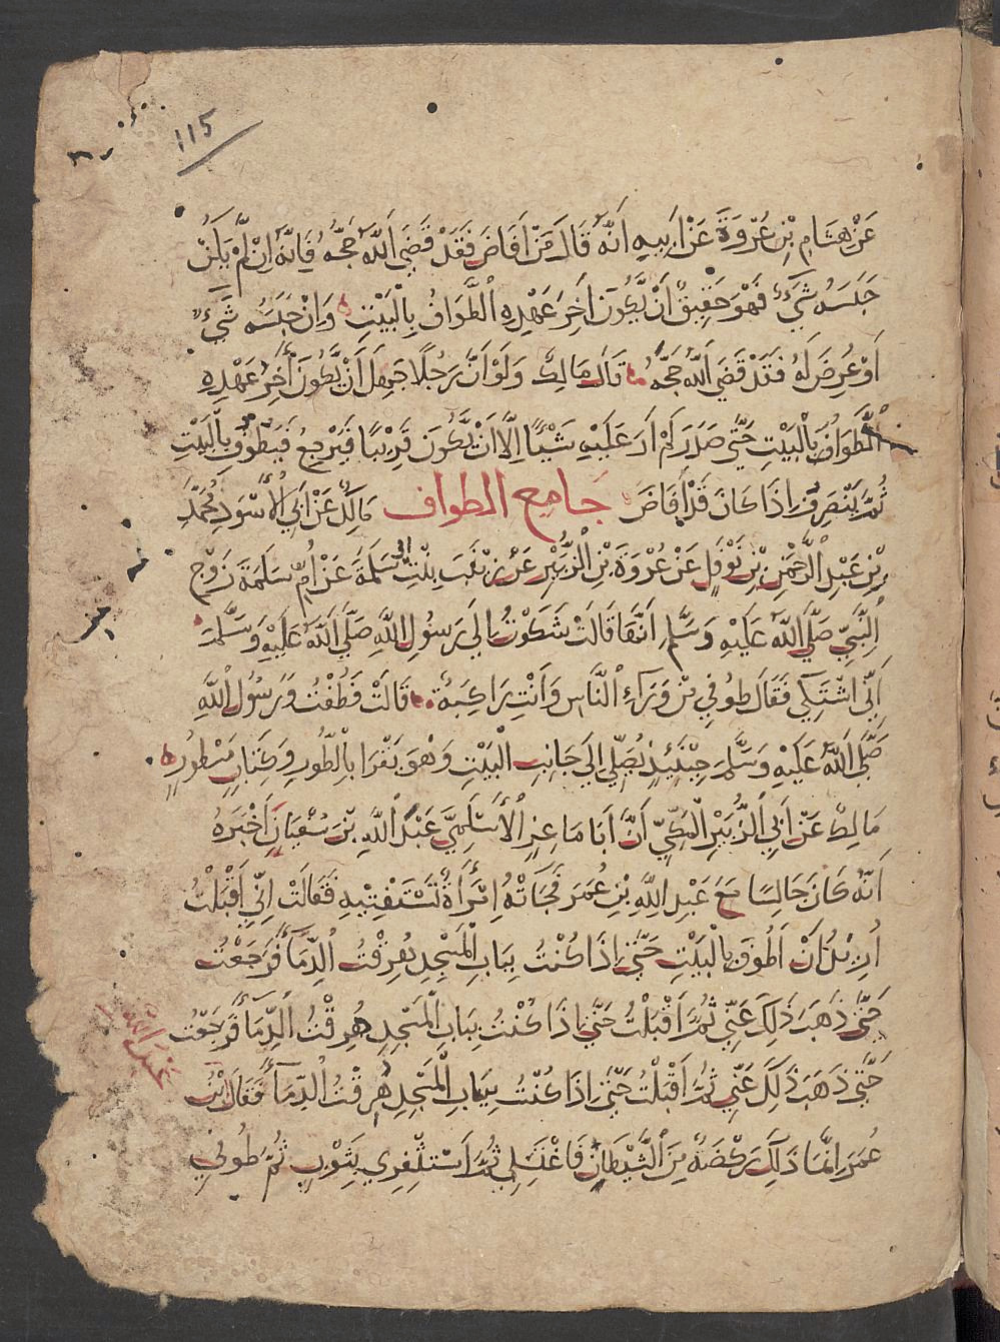 115
عَنْ هِشَامِ بْنِ عُرْوَةَ عَنْ اَبِيهِ اَنَّهُ قَالَ مَنْ اَفَاضَ فَقَدْ قَضَى اَللَّهُ حَجَّهُ فَاِنَّهُ اِنْ لَمْ يَكُنْ
حَبَسَهُ شَيْءٌ فَهْوَ حَقِيقٌ اَنْ يَّكُونَ اَخِرَ عَهْدِهِ اَلطَّوَافُ بِالْبَيْتِ وَاِنْ حَبَسَهُ شَيْءٌ
اَوْ عُرِضَ لَهُ فَقَدْ قَضَى اَللَّهُ حَجَّهُ قَالَ مَالِكٌ وَلَوْ اَنَّ رَجُلًا جَهِلَ اَنْ يَّكُونَ اَخِرُ عَهْدِهِ
اَلطَّوَافَ بِالْبَيْتِ حَتَّى صَدَرَ لَمْ اَرَ عَلَيْهِ شَيْـًٔا اِلَّا اَنْ يَّكُونَ قَرِيبًا فَيَرْجِعُ فَيَطُوفُ بِالْبَيْتِ
ثُمَّ يَنْصَرِفُ اِذَا كَانَ قَدْ اَفَاضَ جَامع الطواف مَالِكٌ عَنْ اَبِي اَلْاَسْوَدِ مُحَمَّدِ
بْنِ عَبْدِ اَلرَّحْمٰنِ بْنِ نَوْفَلٍ عَنْ عُرْوَةَ بْنِ اَلزُّبَيْرِ عَنْ زَيْنَبَ بِنْتِ اَبِي سَلَمَةَ عَنْ اُمِّ سَلَمَةَ زَوْجِ
اِلنَّبِيِّ صَلَّى اَللَّهُ عَلَيْهِ وَسَلَّمَ اَنَّهَا قَالَتْ شَكَوْتُ اِلَى رَسُولِ اِللَّهِ صَلَّى اَللَّهُ عَلَيْهِ وَسَلَّمَ
اَنِّي اَشْتَكِي فَقَالَ طُوفِي مِنْ وَرَاءِ اِلنَّاسِ وَاَنْتِ رَاكِبَةٌ قَالَتْ فَطُفْتُ وَرَسُولُ اُللَّهِ
صَلَّى اَللَّهُ عَلَيْهِ وَسَلَّمَ حِينَئِذٍ يُصَلِّي اِلَى جَانِبِ اِلْبَيْتِ وَهْوَ يَقْرَا بِالطُّورِ وَكِتَابٍ مَسْطُورٍ
مَالِكٌ عَنْ اَبِي اِلزُّبَيْرِ اِلْمَكِّيِّ اَنَّ اَبَا مَاعِزٍ اِلْاَسْلَمِيَّ عَبْدَ اَللَّهِ بْنَ سُفْيَانَ اَخْبَرَهُ
اَنَّهُ كَانَ جَالِسًا مَعَ عَبْدِ اِللَّهِ بْنِ عُمَرَ فَجَاَتْهُ اِمْرَأَةٌ تَسْتَفْتِيهِ فَقَالَتْ اِنِّي اَقْبَلْتُ
اُرِيدُ اَنْ اَطُوفَ بِالْبَيْتِ حَتَّى اِذَا كُنْتُ بِبَابِ اِلْمَسْجِدِ هُرِقْتُ اُلدِّمَآءَ فَرَجَعْتُ
حَتَّى ذَهَبَ ذَلِكَ عَنِّي ثُمَّ اَقْبَلْتُ حَتَّى اِذَا كُنْتُ بِبَابِ اِلْمَسْجِدِ هُرِقْتُ اُلدِّمَآءَ فَرَجَعْتُ
حَتَّى ذَهَبَ ذَلِكَ عَنِّي ثُمَّ اَقْبَلْتُ حَتَّى اِذَا كُنْتُ بِبَابِ اِلْمَسْجِدِ هُرِقْتُ اُلدِّمَآءَ فَقَالَ اَبْنُ
عُمَرَ اِنَّمَا ذَلِكَ رَكْضَةٌ مِنَ اَلشَّيْطَانِ فَاغْتَسِلِي ثُمَّ اَسْتَثْفِرِي بِثَوْبٍ ثُمَّ طُوفِي